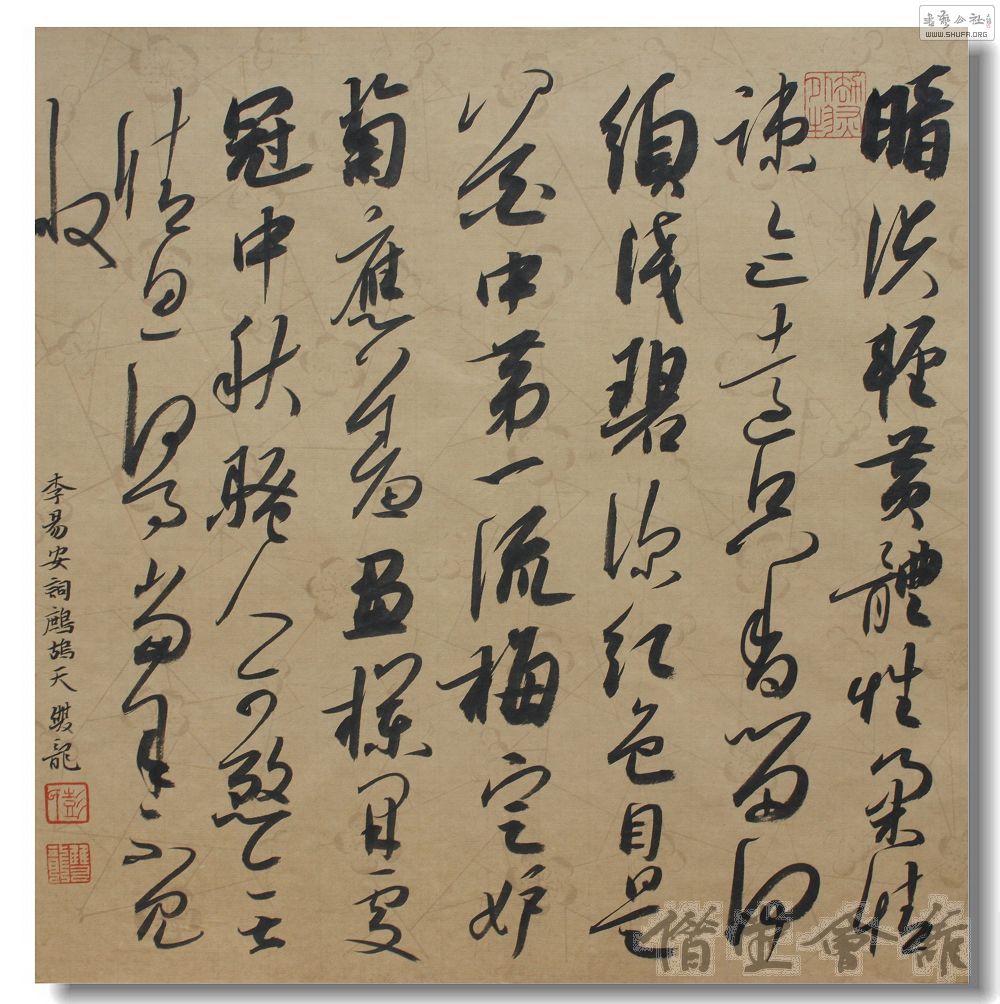 暗淡輕黄體性柔情
疎迹遠只香留何
須淺碧深红色自是
花中第一流梅定妒
菊應羞畫欄開處
冠中秋騷人可煞無
情思何事當年不見
收
李易安詞鷓鴣天 雙龍
書藝公社
WWW.SHUFA.ORG